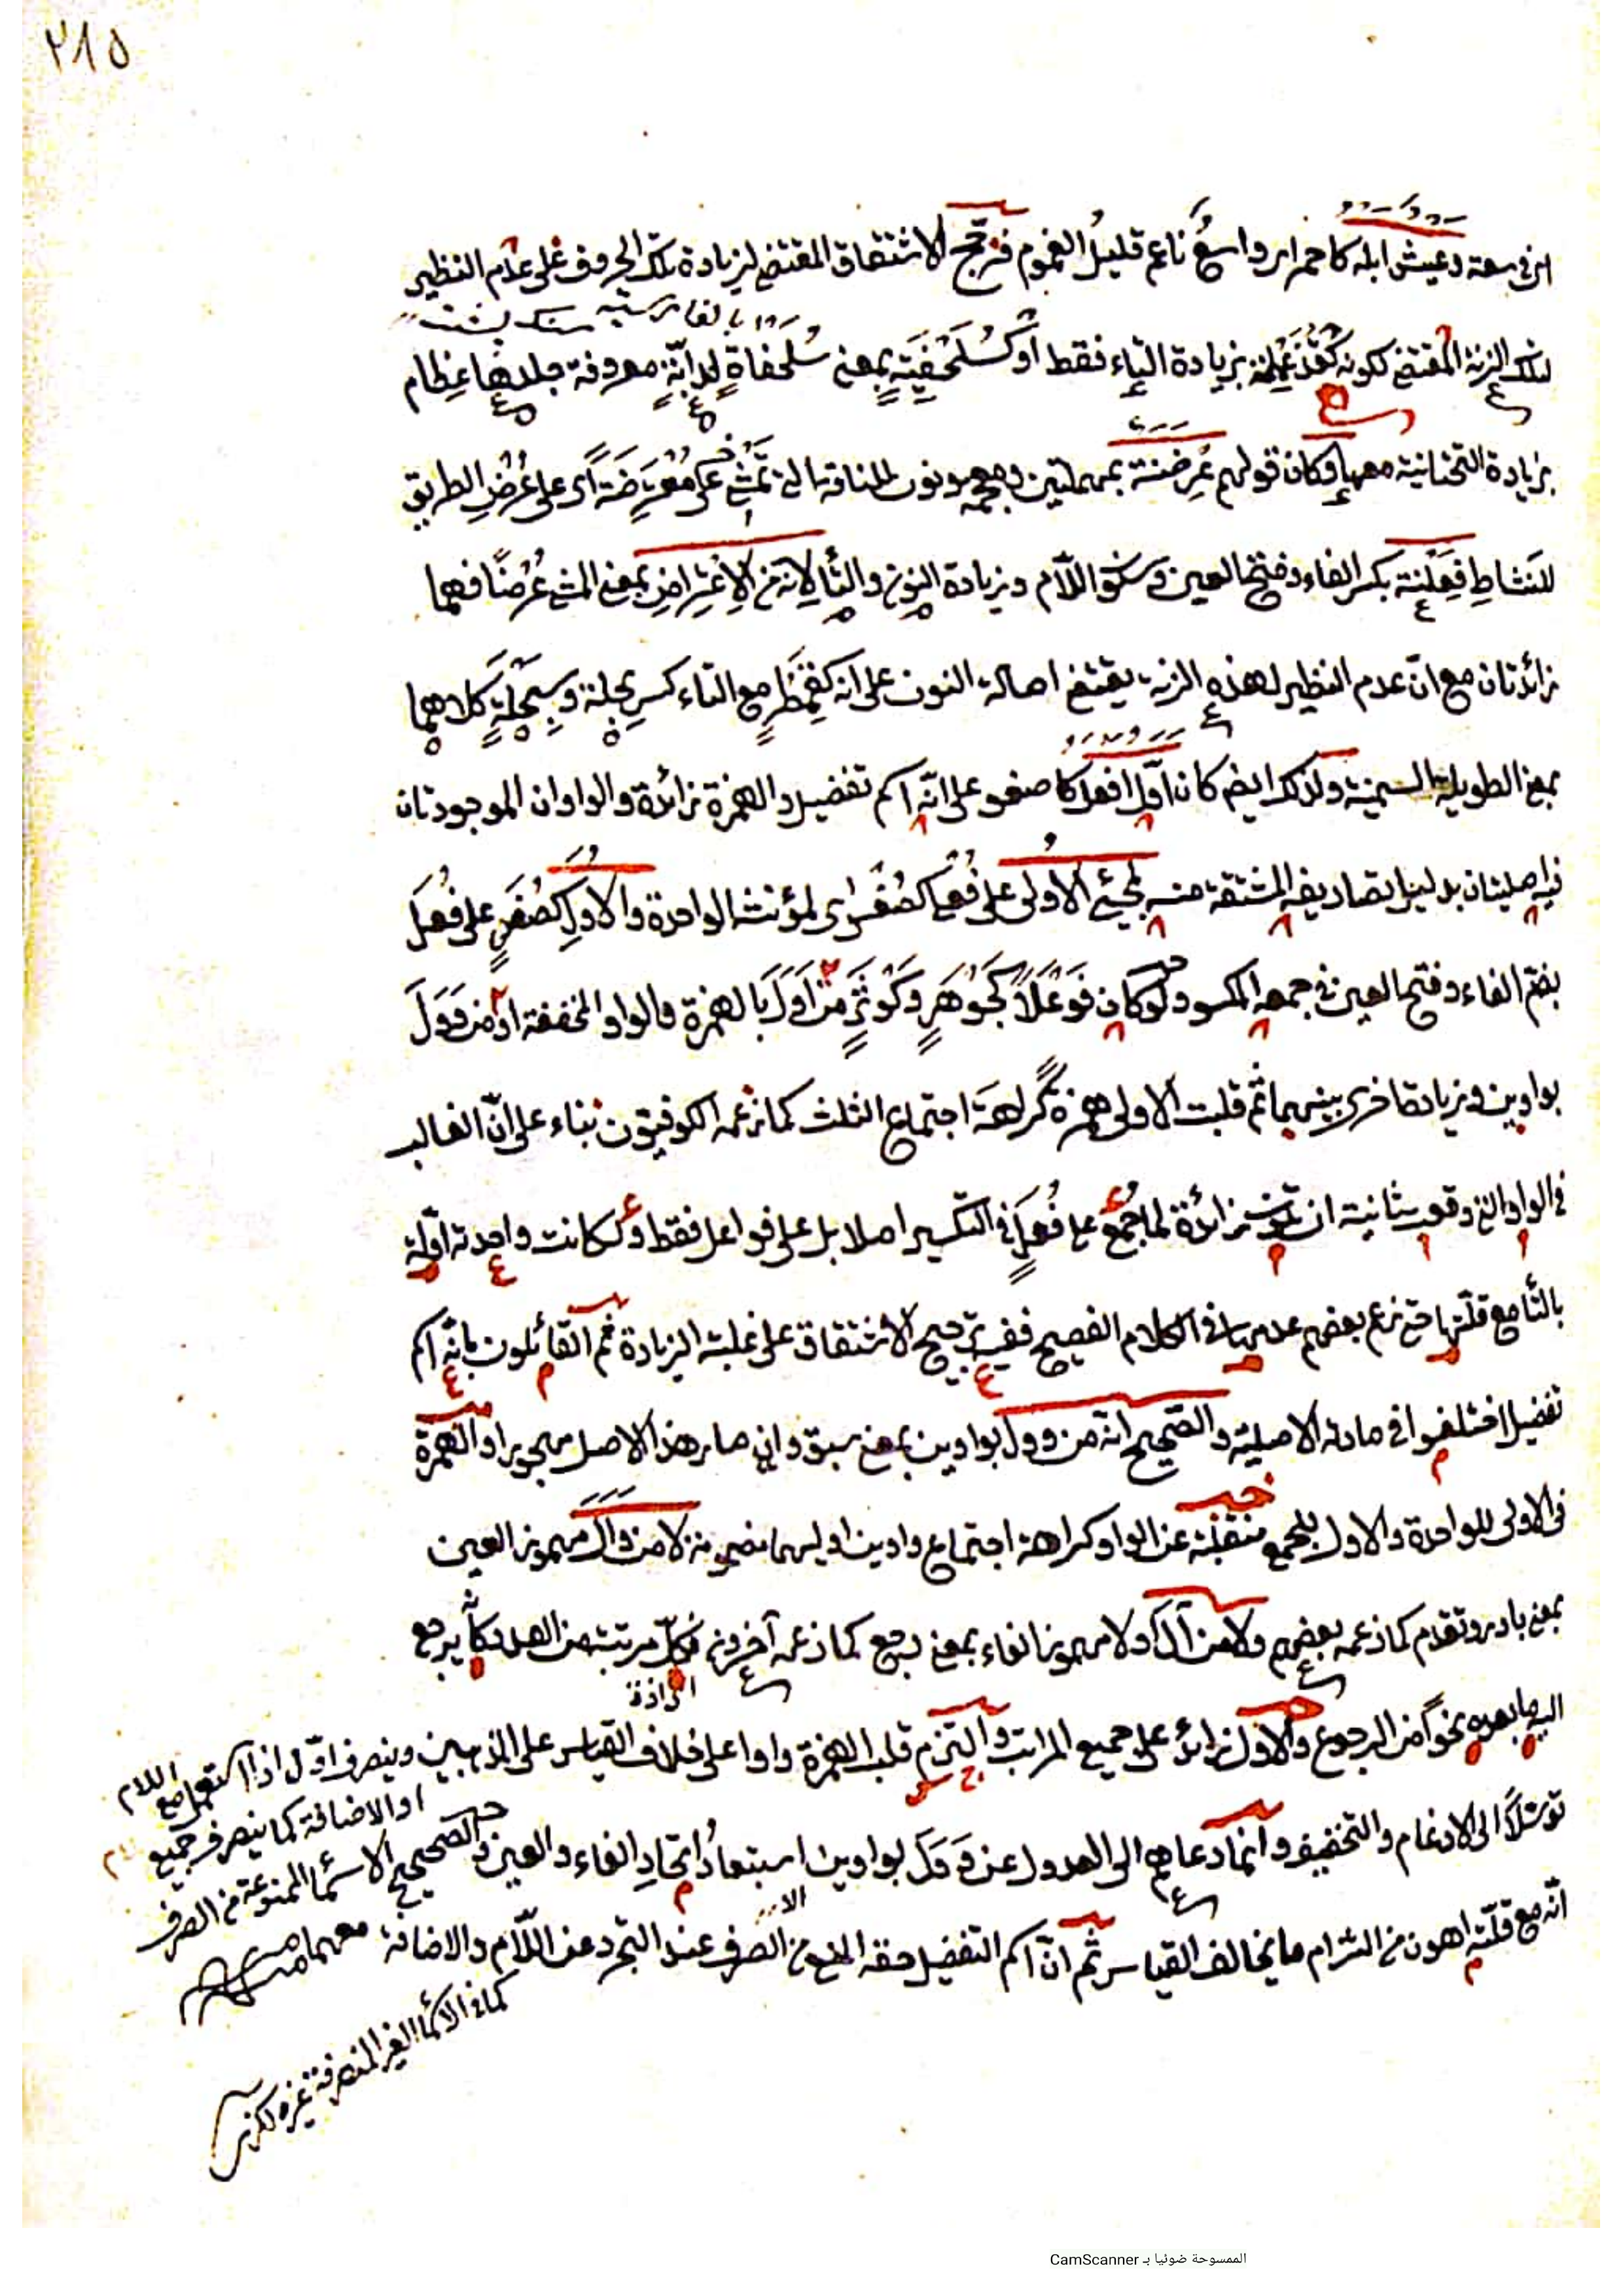 ٢١٥
اى فى سعة وعيش ابله كاحمر اى واسع ناعم قليل الغموم فرجح الاشتقاق المقتضى لزيادة تلك الحروف على عدم النظير
لتلك الزنة المقتضى لكونه كقذعميلة بزيادة الياء فقط او كسُلَحْفِيَةٍ بمعنى سُلَحْفَاةٍ لدابّةٍ معروفة جلدها عِظام
سنك پشت
بزيادة التحتانية معها وكان قولهم عِرَضنة بمهملتين ومعجمة ونون للناقة التى تمشى على مُعْتَرِضَةً اى على عُرْضِ الطريق
للنشاطِ فِعَلْنة بكسر الفاء وفتح العين وسكون اللّام وزيادة النون والتّاء لانه من الاِعْتِراضِ بمعنى المشى عُرْضًا فهما
زائدتان مع انّ عدم النظير لهذه الزنة يقتضى اصالة النون على انه كقِمَطْرٍ مع التاء كسِرِبحلة وسِبَحْلَةٍ كلاهما
بمعنى الطويلة السمينة ولذلك ايضا كان اوّل افعل كاصغر على انّه اسم تفضيل والهمزة زائدة والواوان الموجودتان
فيه اصليتان بدليل تصاريفه المشتقة منه لمجئ الاُولى على فُعلى كصُغْرى لمؤنثه الواحدة والاُوَلِ كصُغَرٍ على فُعَل
بضمّ الفاء وفتح العين فى جمعه المكسر ولو كان فَوْعَلاً كجَوْهَرٍ وكَوْثَرٍ من اَوَلَ بالهمزة والواو المخففة او من وَوَلَ
بواوين وزيادة اخرى بينهما ثم قلبت الاولى همزة كراهة اجتماع الثلث كما زعمه الكوفيّون بناء على انّ الغالب
فى الواو التى وقعت ثانية ان تكون زائدة لما جُمع على فُعَلٍ فى التكسير اصلا بل على فواعل فقط ولكانت واحدته اوّلة
بالتّاء مع قلّتها حتى زعم بعضهم عدمها فى الكلام الفصيح ففيه ترجيح الاشتقاق على غلبة الزيادة ثم القائلون بانّه اسم
تفضيل اختلفوا فى مادته الاصلية والصّحيح انّه من وول بواوين بمعنى سبق وان صار هذا الاصل مهجورا والهمزة
فى الاولى للواحدة والاول للجمع منقلبة عن الواو كراهة اجتماع واوين اوليهما مضمومة لا من وَاَلَ مهموز العين
بمعنى بادر وتقدم كما زعمه بعضهم ولا من اَوَلَ ولا مهموز الفاء بمعنى رجع كما زعمه آخرون فكلّ مرتبة من العدد كأنه يرجع
اليه ما بعده نحوًا من الرجوع والاول زائد على جميع المراتب والتزم قلب الهمزة واوا على خلاف القياس على المذهبين وينصرف اوّل اذا استعمل مع اللام
او الاضافة كما ينصرف جميع
توسّلاً الى الادغام والتخفيف وانما دعاهم الى العدول عن وَوَلَ بواوين استبعادُ اتّحادِ الفاء والعين والصحيح
الاسماء الممنوعة من الصرف
انّه مع قلّته اهون من التزام ما يخالف القياس ثم انّ اسم التفضيل حقه المنع من الصرف عند التجرد عن اللّام والاضافة
معهما
كما فى الاسماء الغير المنصرفة
الممسوحة ضوئيا بـ CamScanner